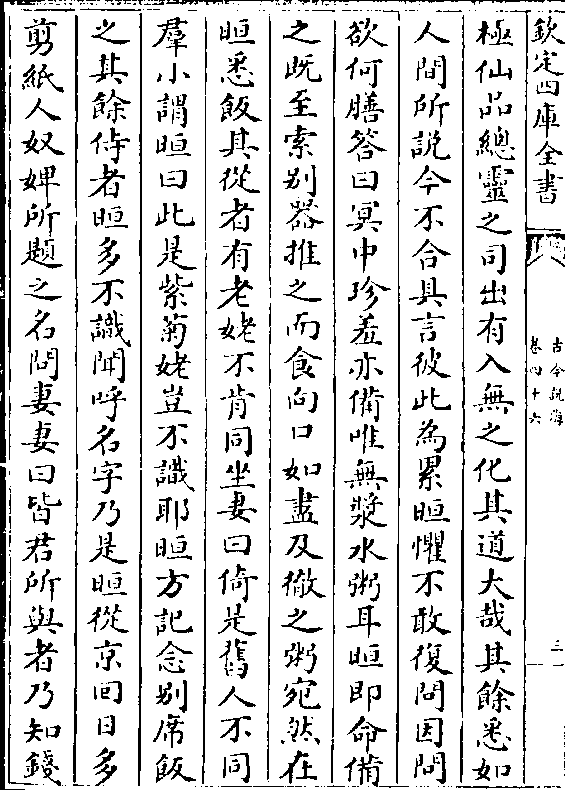 欽定四庫全書
古今說海
卷四十六
三
極仙品總靈之司出有入無之化其道大哉其餘悉如
人間所說今不合具言彼此為累晅懼不敢復問因問
欲何膳答曰冥中珍羞亦備唯無漿水粥耳晅即命備
之既至索别器推之而食向口如盡及徹之粥宛然在
晅悉飯其從者有老姥不肯同坐妻曰倚是舊人不同
羣小謂晅曰此是紫菊姥豈不識耶晅方記念别席飯
之其餘侍者晅多不識聞呼名字乃是晅從京回日多
剪紙人奴婢所題之名問妻妻曰皆君所與者乃知錢